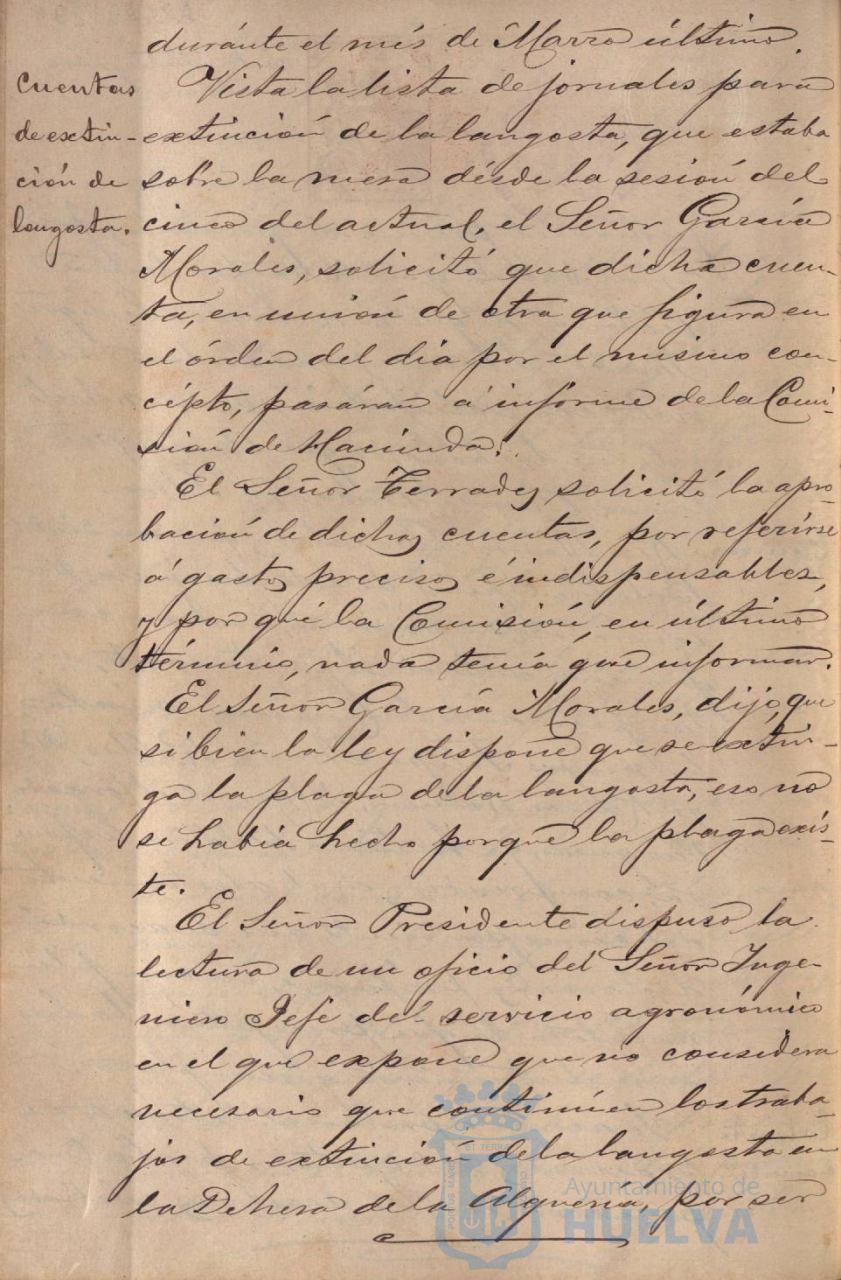 duránte el més de Marzo último.
Cuentas
de extin-
ción de
langosta.
Vista la lista de jornales para
extinción de la langosta, que estaba
sobre la mesa désde la sesión del
cinco del actual, el Señor García
Morales, solicitó que dicha cuen-
ta, en unión de otra que figura en
el órden del dia por el mismo con-
cépto, pasáran á informe de la Comi-
sión de Hacienda.
El Señor Terrades solicitó la apro-
bación de dichas cuentas, por referirse
á gastos precisos é indispensables,
y por qué la Comisión, en último
término, nada tenía que informar.
El Señor García Morales, dijo, que
si bien la ley dispone que se extin-
ga la plaga de la langosta, eso no
se había hecho porque la plaga exís-
te.
El Señor Presidente dispuso la
lectura de un oficio del Señor Inge-
niero Jefe del servicio agronómico
en el que expone que no considera
necesario que continúen los traba-
jos de extinción de la langosta en
la Dehesa de la Alquería, por ser
Ayuntamiento de
HUELVA